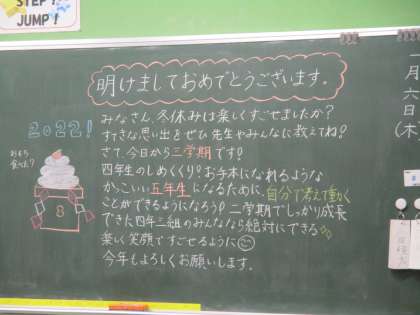 STEP!
JUMP!
明けましておめでとうございます。
みなさん、冬休みは楽しくすごせましたか?
すてきな思い出をぜひ先生やみんなに教えてね!
さて、今日から三学期です!
四年生のしめくくり!お手本になれるような
かっこいい五年生になるために、自分で考えて動く
ことができるようになろう!二学期でしっかり成長
できた四年三組のみんななら絶対にできる
楽しく笑顔ですごせるように
今年もよろしくお願いします。
2022!
おもち
食べた?
月
六
日
(木)